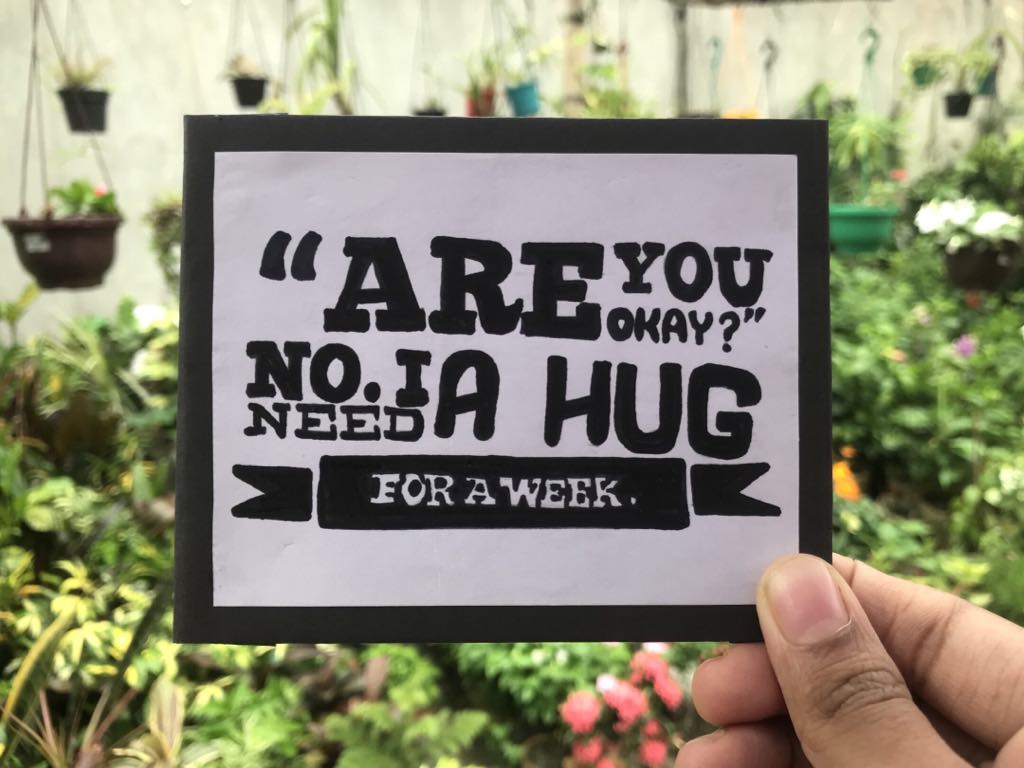 “ARE YOU
OKAY?”
NO. I
NEED A HUG
FOR A WEEK.